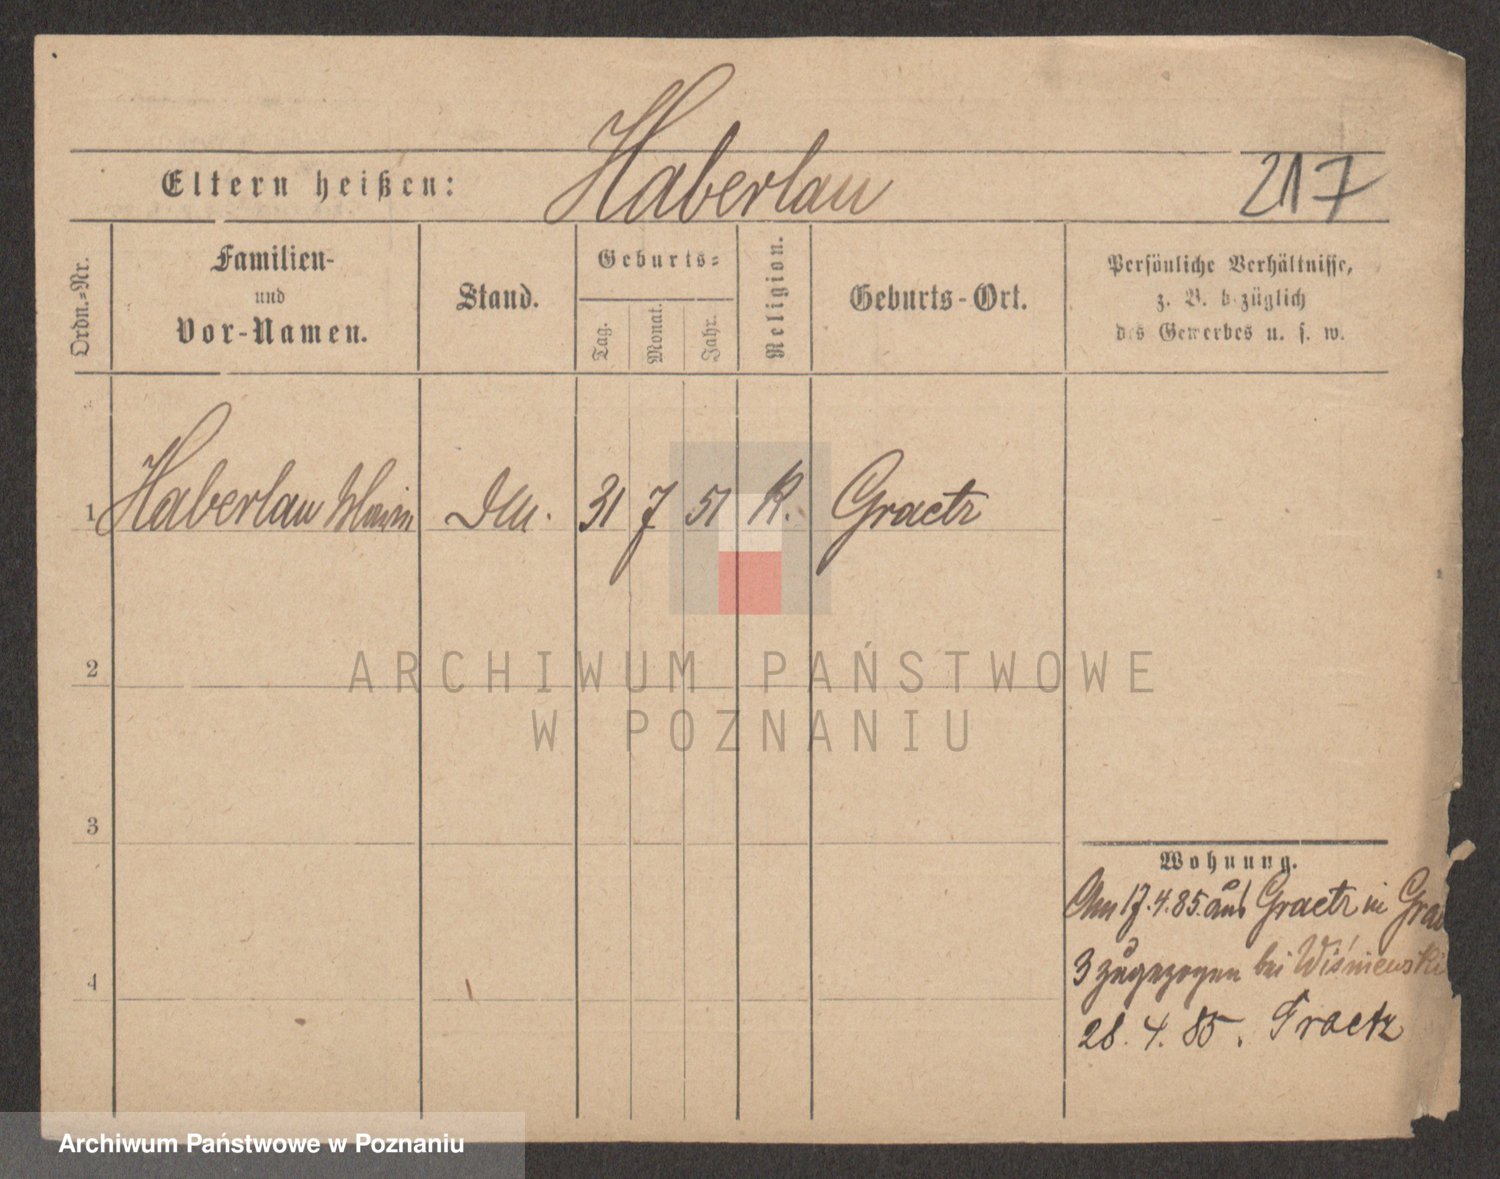 Haberlau
Eltern heißen:
217
Ordn.-Nr.
Familien-
und
Vor-Namen.
Stand.
Geburts-
Tag.
Monat.
Jahr.
Religion.
Geburts-Ort.
Persönliche Verhältnisse,
z. B. bezüglich
des Gewerbes u. s. w.
1 Haberlau 31 7 51 K. Graetz
2
ARCHIWUM PAŃSTWOWE
W POZNANIU
3
4
Wohnung.
Am 17.4.85. aus Graetz in
3 zugezogen bei Wiśniewski
28. 4. 85. Graetz
Archiwum Państwowe w Poznaniu